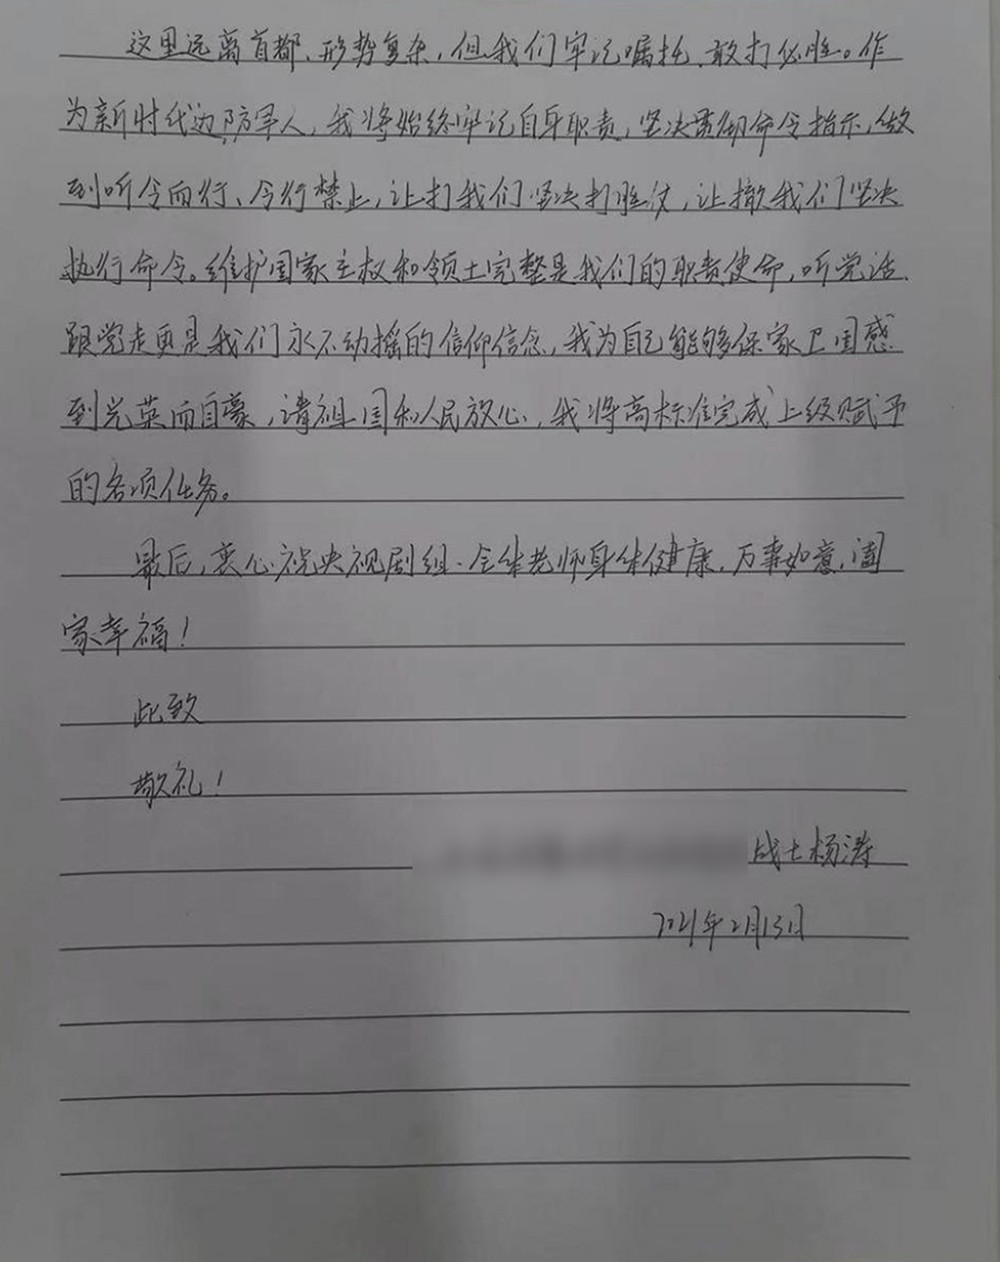 这里远离首都、形势复杂，但我们牢记嘱托、敢打必胜。作
为新时代边防军人，我将始终牢记自身职责，坚决贯彻命令指示，做
到听令而行、令行禁止，让打我们坚决打胜仗，让撤我们坚决
执行命令。维护国家主权和领土完整是我们的职责使命，听党话、
跟党走更是我们永不动摇的信仰信念，我为自己能够保家卫国感
到光荣而自豪，请祖国和人民放心，我将高标准完成上级赋予
的各项任务。
最后，衷心祝央视剧组、全体老师身体健康，万事如意，阖
家幸福！
此致
敬礼！
战士杨涛
2021年2月13日